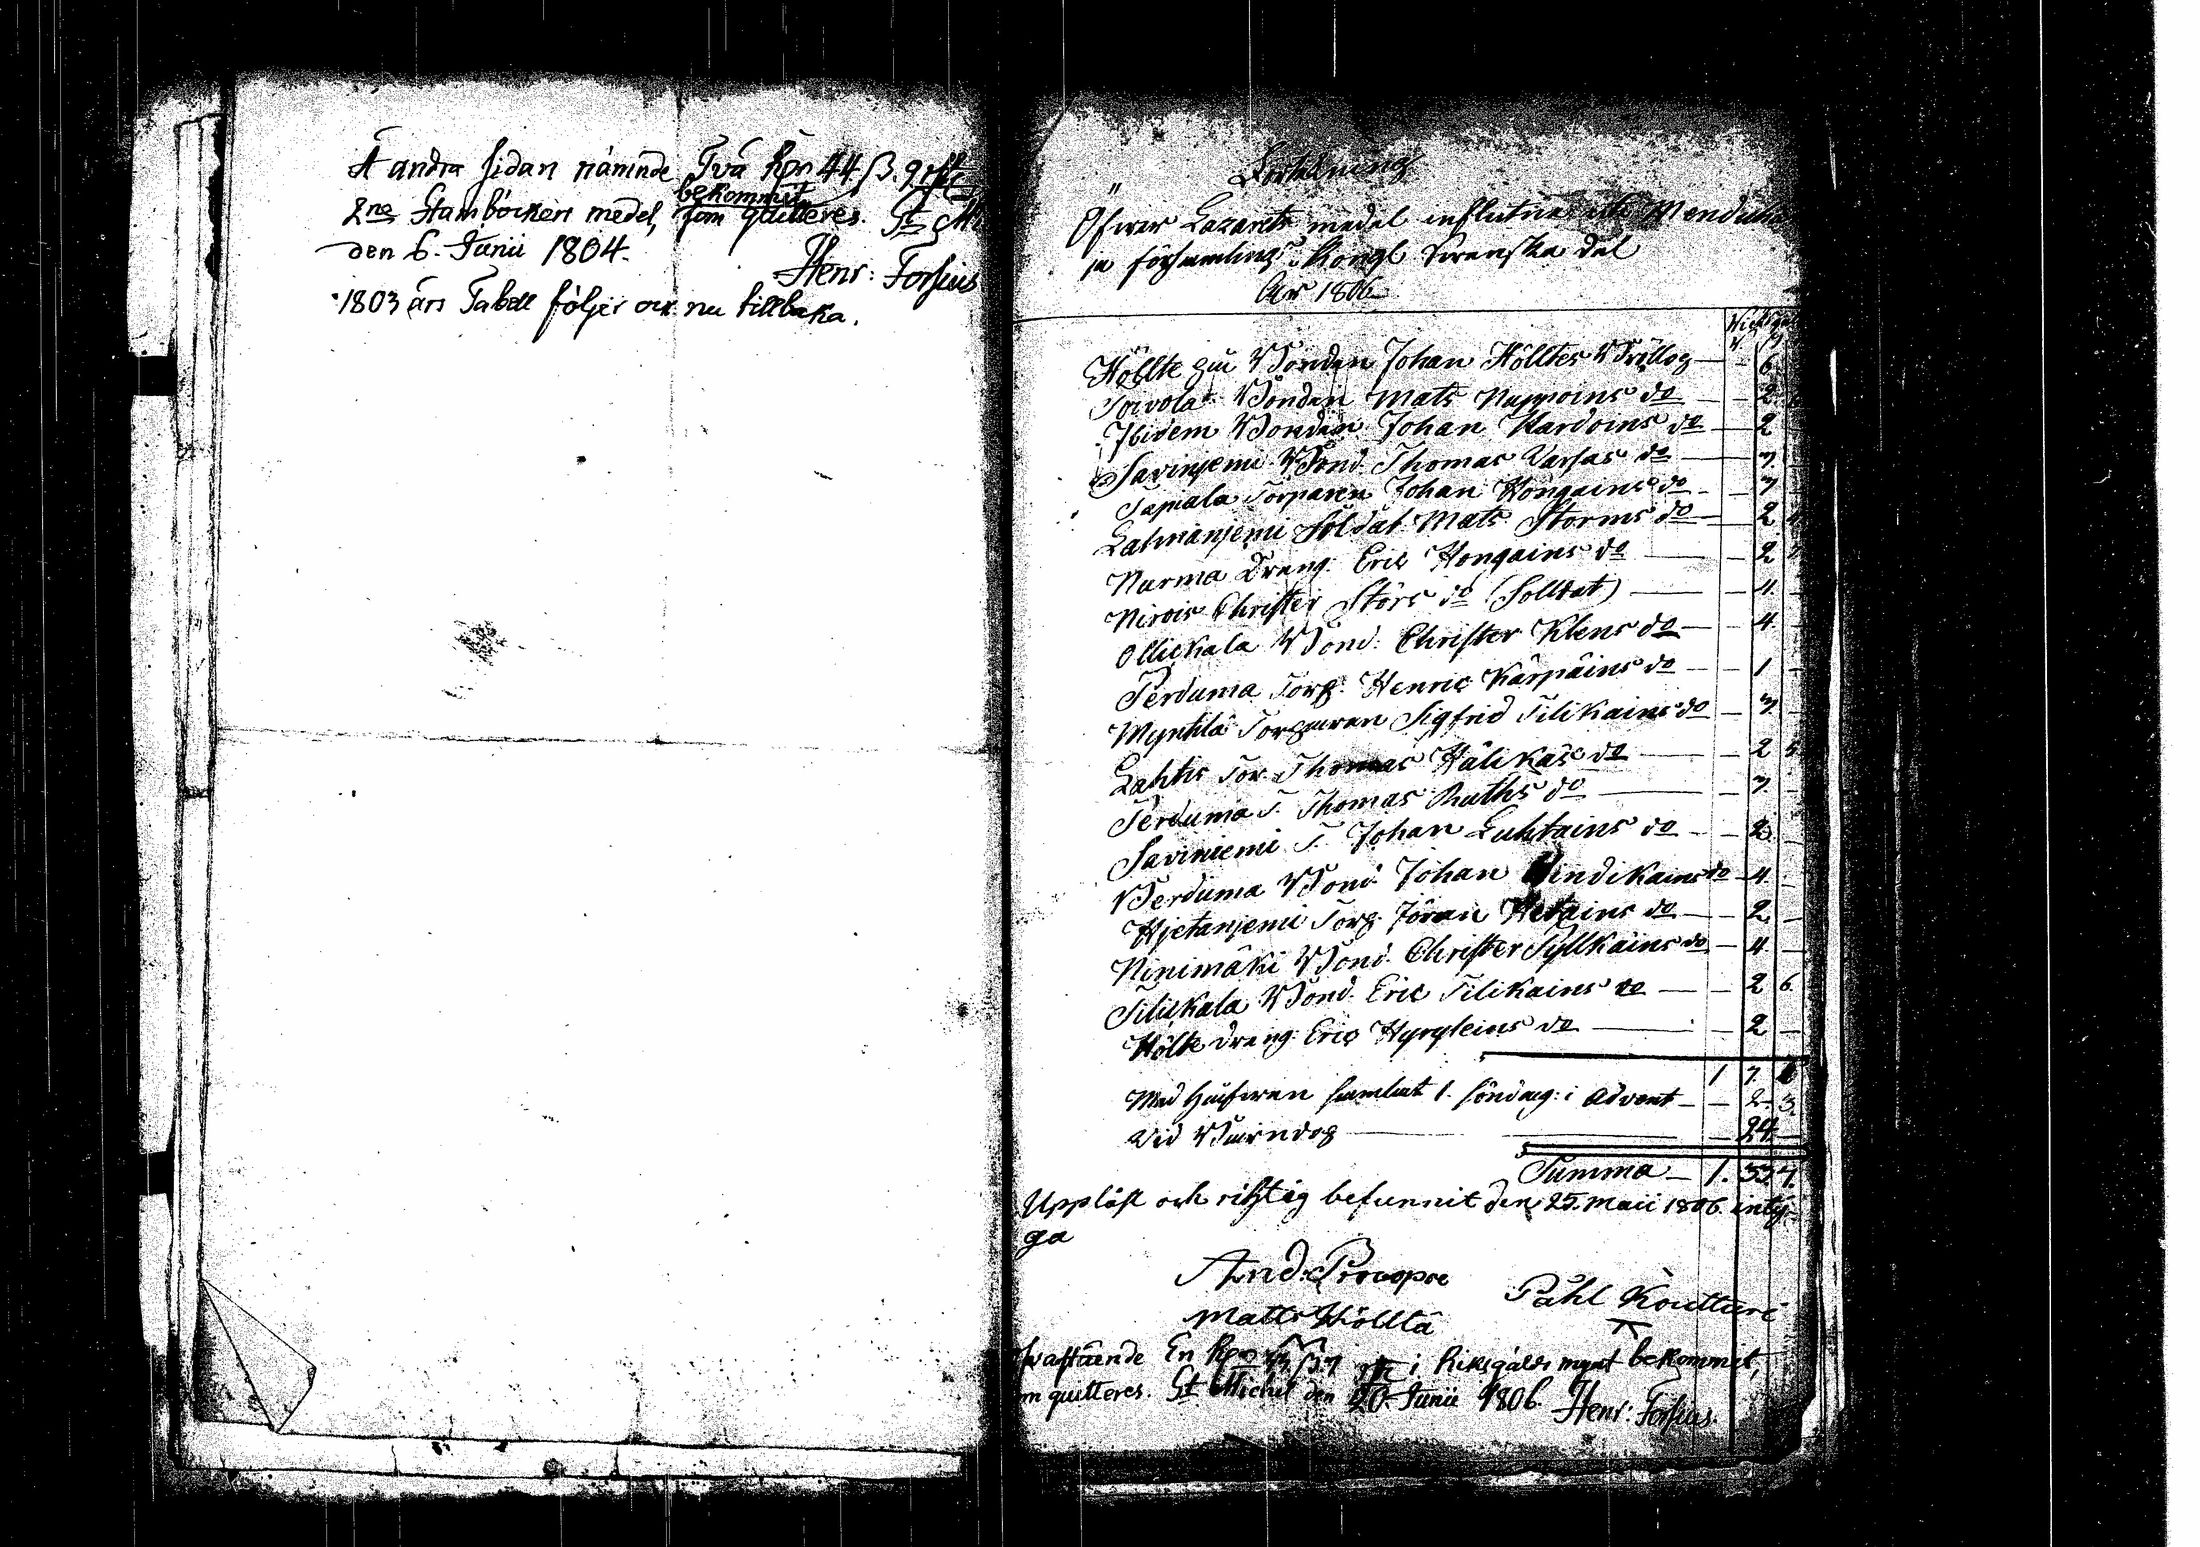 Å andra sidan nämnde Två Rdr 44 ß. 9
bekommit
2ne Stamböcker medel, som quitteres. St M
den 6. Junii 1804.
Henr: Forsius
1803 års Tabell följer ock nu tillbaka.
Förtekning
Öfwer Lazaretts medel influtne uti Menduha
ja församlings Kongl Swenska del
År 1806
Höllte Bonden Johan Hölltes Bröllop — - 6
Toivola Bonden Mats Nuppoins do — - 2
Ibidem Bonden Johan Kardoins do — 2
Savinjemi Bond. Thomas Varsas do — 3
Tapiala Torparen Johan Hongains do - - 3
Lahnanjemi Soldat Mats Storms do — 2
Nurma Dräng Eric Hongains do — - 2
Nirois Christer Störs do (Solldat) — - 4 -
Ollickala Bond. Christer Klens do — - 4 -
Perduma Torp. Henric Kärpäins do — - 1 -
Myntilä Torparen Sigfrid Tilikains do - 3 -
Lahtis Tor. Thomas Hälikäs do — - 2
Perduma T. Thomas Ruths do — - 3 -
Saviniemi T. Johan Luhtains do - - 2 -
Perduma Bond. Johan Pindikains do - 4 -
Hjetanjemi Torp. Jöran Hetains do — - 2 -
Ninimäki Bond. Christer Syllkäins do - 4 -
Tilickala Bond. Eric Tilikains do — - 2 6
Hölte dräng Eric Hyryläins do — - 2 -
1 7
Med Håfwen samlat 1. söndag: i Advent - - 2 3
Vid Bärndop — - 24 -
Summa - 1. 33
Uppläst och riktig befunnit den 25. Maii 1806. inty-
ga
And: Procopoe
Påhl Koutturi
Matts Hölltä
En Rdr 33 ß i Riksgälds mynt bekommit,
m quitteres. St Michel den 20. Junii 1806. Henr: Forsius.